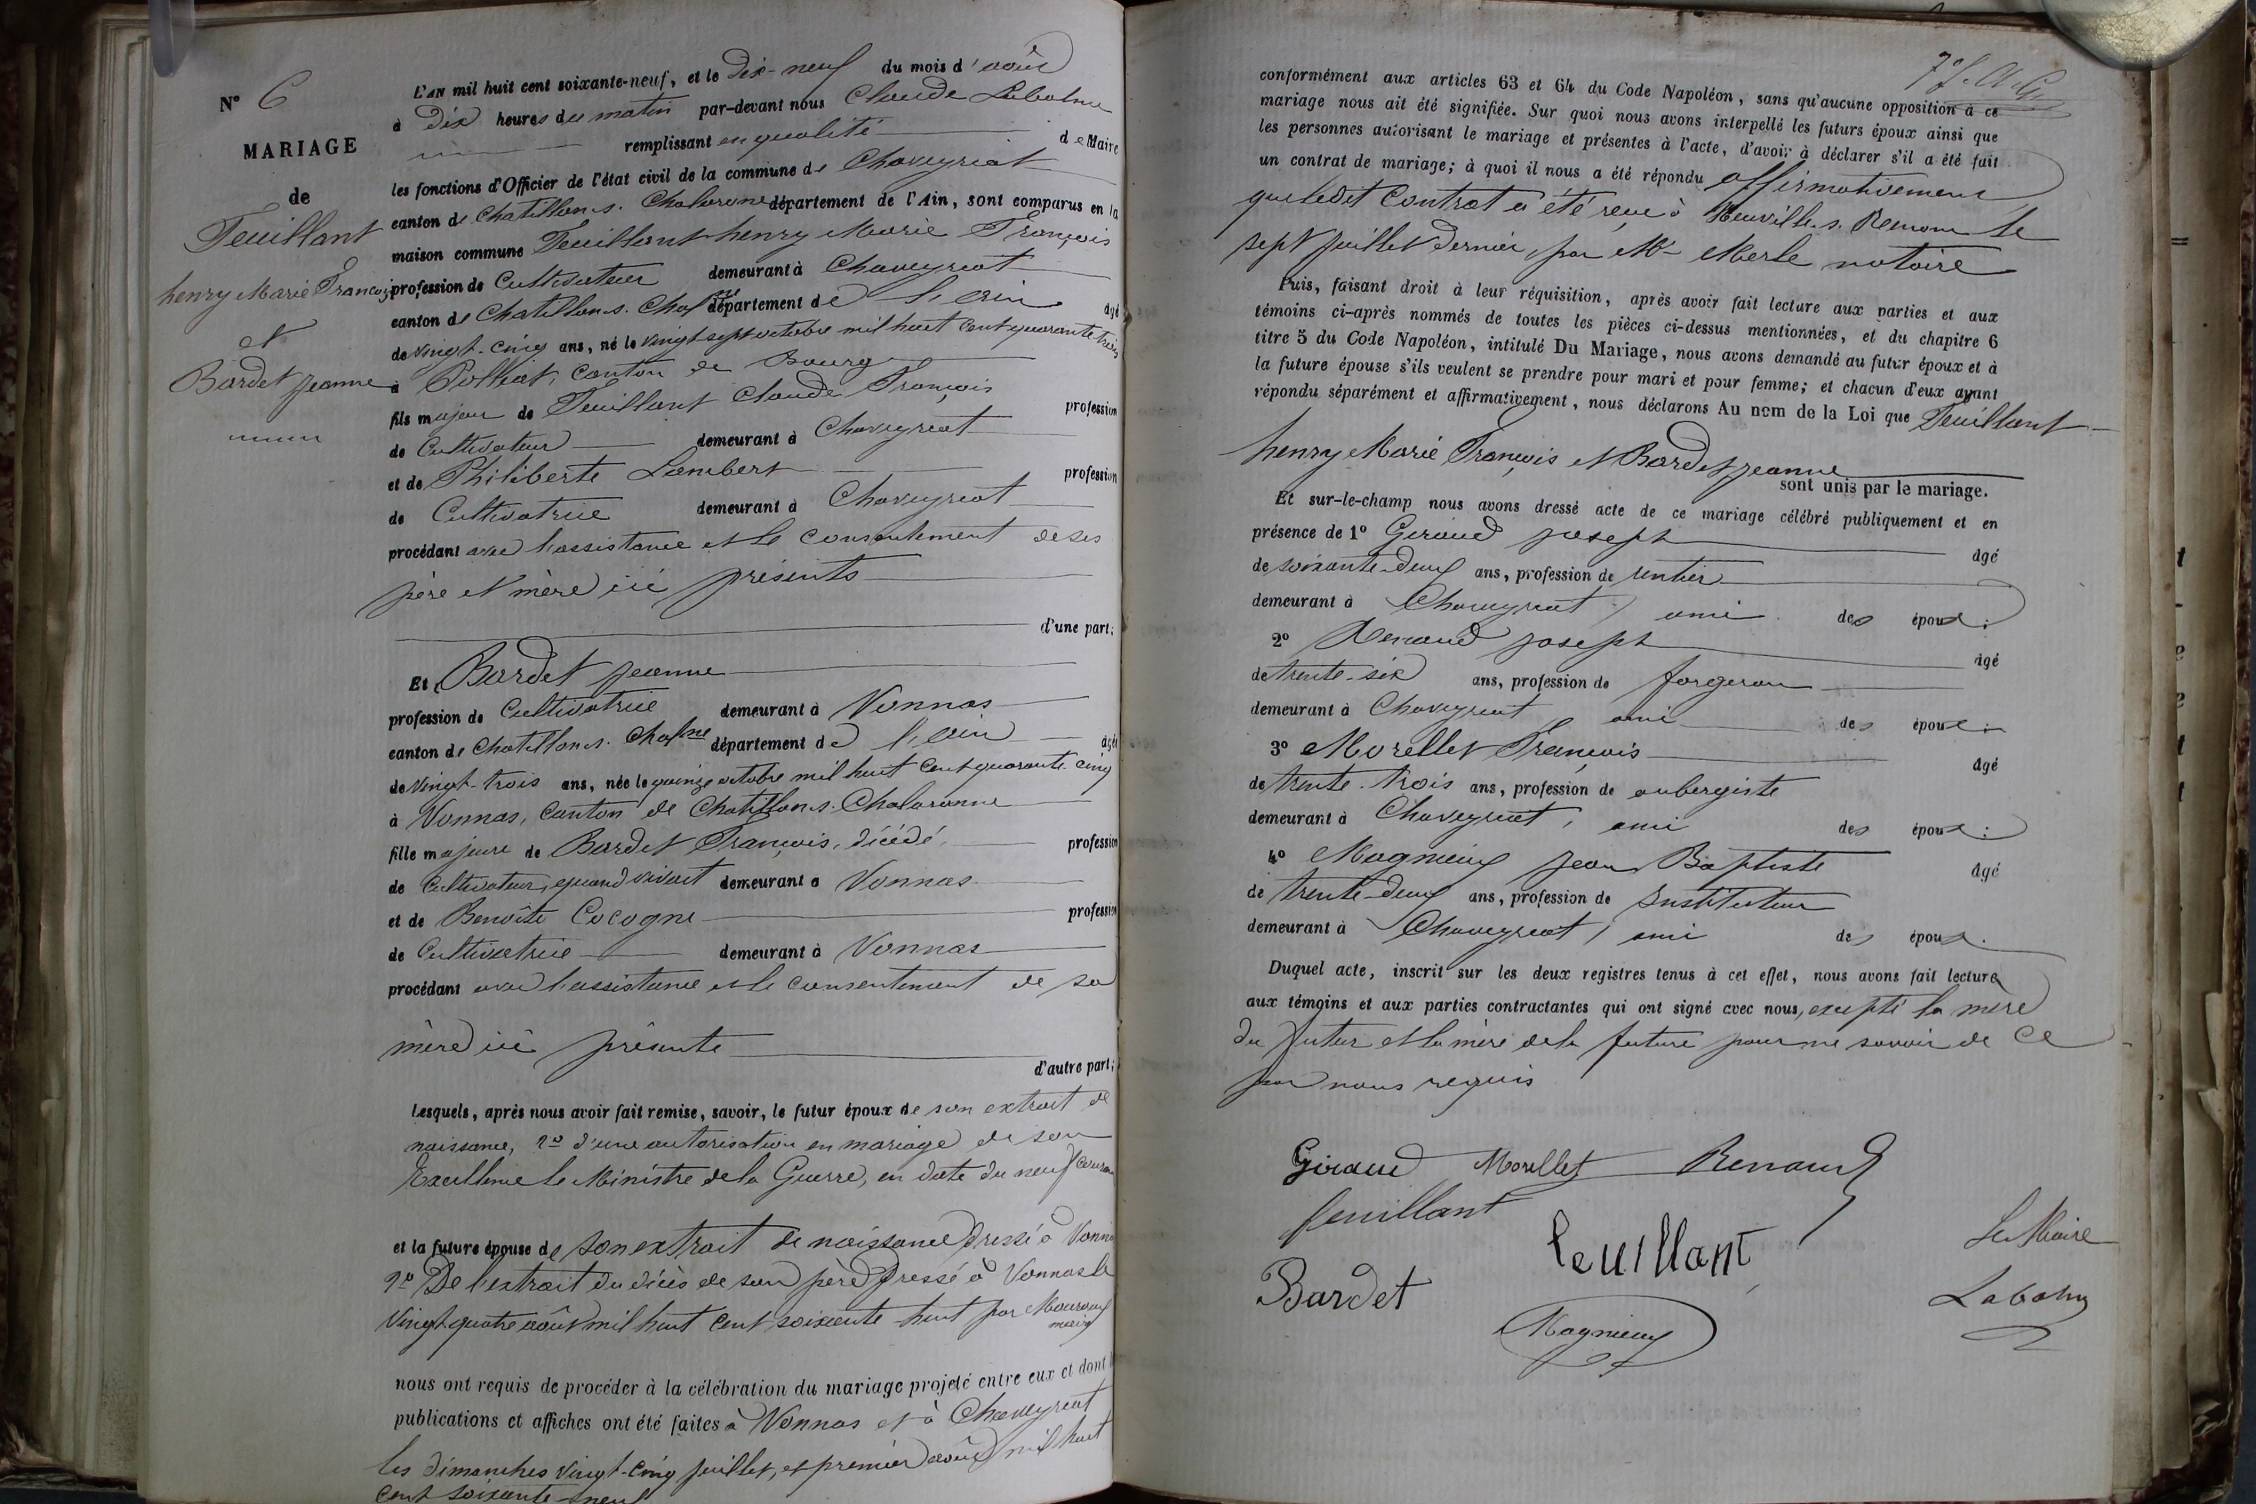 N° 6
MARIAGE
de
Feuillant
henry Marie François
et
Bardet Jeanne
L'AN mil huit cent soixante-neuf, et le Dix-neuf du mois d'août
à Dix heures du matin par-devant nous Claude
remplissant en qualité de Maire
les fonctions d'Officier de l'état civil de la commune de Chaveyriat
canton de Chatillon-s.-Chalaronne département de l'Ain, sont comparus en la
maison commune Feuillant henry Marie François
profession de Cultivateur demeurant à Chaveyriat
canton de Chatillon-s.-Chalne département de l'ain agé
de vingt-cinq ans, né le vingt sept octobre mil huit cent quarante trois
à Polliat, canton de Bourg
fils majeur de Feuillant Claude François profession
de Cultivateur demeurant à Chaveyriat
et de Philiberte Lambert profession
de Cultivatrice demeurant à Chaveyriat
procédant avec l'assistance et le consentement de ses
père et mère ici présents
d'une part;
Et Bardet Jeanne
profession de Cultivatrice demeurant à Vonnas
canton de Chatillon-s.-Chalne département de l'ain agée
de vingt-trois ans, née le quinze octobre mil huit cent quarante-cinq
à Vonnas, canton de Chatillon-s.-Chalaronne
fille majeure de Bardet François, décédé, profession
de Cultivateur, quand vivait demeurant à Vonnas
et de Benoîte Cocogne profession
de Cultivatrice demeurant à Vonnas
procédant avec l'assistance et le consentement de sa
mère ici présente
d'autre part;
Lesquels, après nous avoir fait remise, savoir, le futur époux de son extrait de
naissance, 2° d'une autorisation en mariage de son
Excellence le Ministre de la Guerre, en date du neuf courant
et la future épouse de son extrait de naissance dressé à Vonnas
2° De l'extrait du décès de son père dressé à Vonnas le
Vingt-quatre août mil huit cent soixante-huit par
maire
nous ont requis de procéder à la célébration du mariage projeté entre eux et dont les
publications et affiches ont été faites à Vonnas et à Chaveyriat
les dimanches vingt-cinq juillet, et premier août mil huit
cent soixante-neuf
conformément aux articles 63 et 64 du Code Napoléon, sans qu'aucune opposition à ce
mariage nous ait été signifiée. Sur quoi nous avons interpellé les futurs époux ainsi que
les personnes autorisant le mariage et présentes à l'acte, d'avoir à déclarer s'il a été fait
un contrat de mariage; à quoi il nous a été répondu affirmativement
que ledit Contrat a été reçu à Neuville-s.-Renom le
sept juillet dernier, par Me Merle notaire
Puis, faisant droit à leur réquisition, après avoir fait lecture aux parties et aux
témoins ci-après nommés de toutes les pièces ci-dessus mentionnées, et du chapitre 6
titre 5 du Code Napoléon, intitulé Du Mariage, nous avons demandé au futur époux et à
la future épouse s'ils veulent se prendre pour mari et pour femme; et chacun d'eux ayant
répondu séparément et affirmativement, nous déclarons Au nom de la Loi que Feuillant
henry Marie François et Bardet Jeanne
sont unis par le mariage.
Et sur-le-champ nous avons dressé acte de ce mariage célébré publiquement et en
présence de 1° Giraud Joseph agé
de soixante-deux ans, profession de rentier
demeurant à Chaveyriat, ami des époux;
2° Renaud Joseph agé
de trente-six ans, profession de forgeron
demeurant à Chaveyriat, ami des époux;
3° Morellet François agé
de trente-trois ans, profession de aubergiste
demeurant à Chaveyriat, ami des époux;
4° Magnieux Jean Baptiste agé
de trente-deux ans, profession de Instituteur
demeurant à Chaveyriat, ami des époux.
Duquel acte, inscrit sur les deux registres tenus à cet effet, nous avons fait lecture
aux témoins et aux parties contractantes qui ont signé avec nous, excepté la mère
du futur et la mère de la future pour ne savoir de ce
par nous requis
Giraud Morellet Renaud
feuillant
feuillant
Le Maire
Bardet
Magnieux